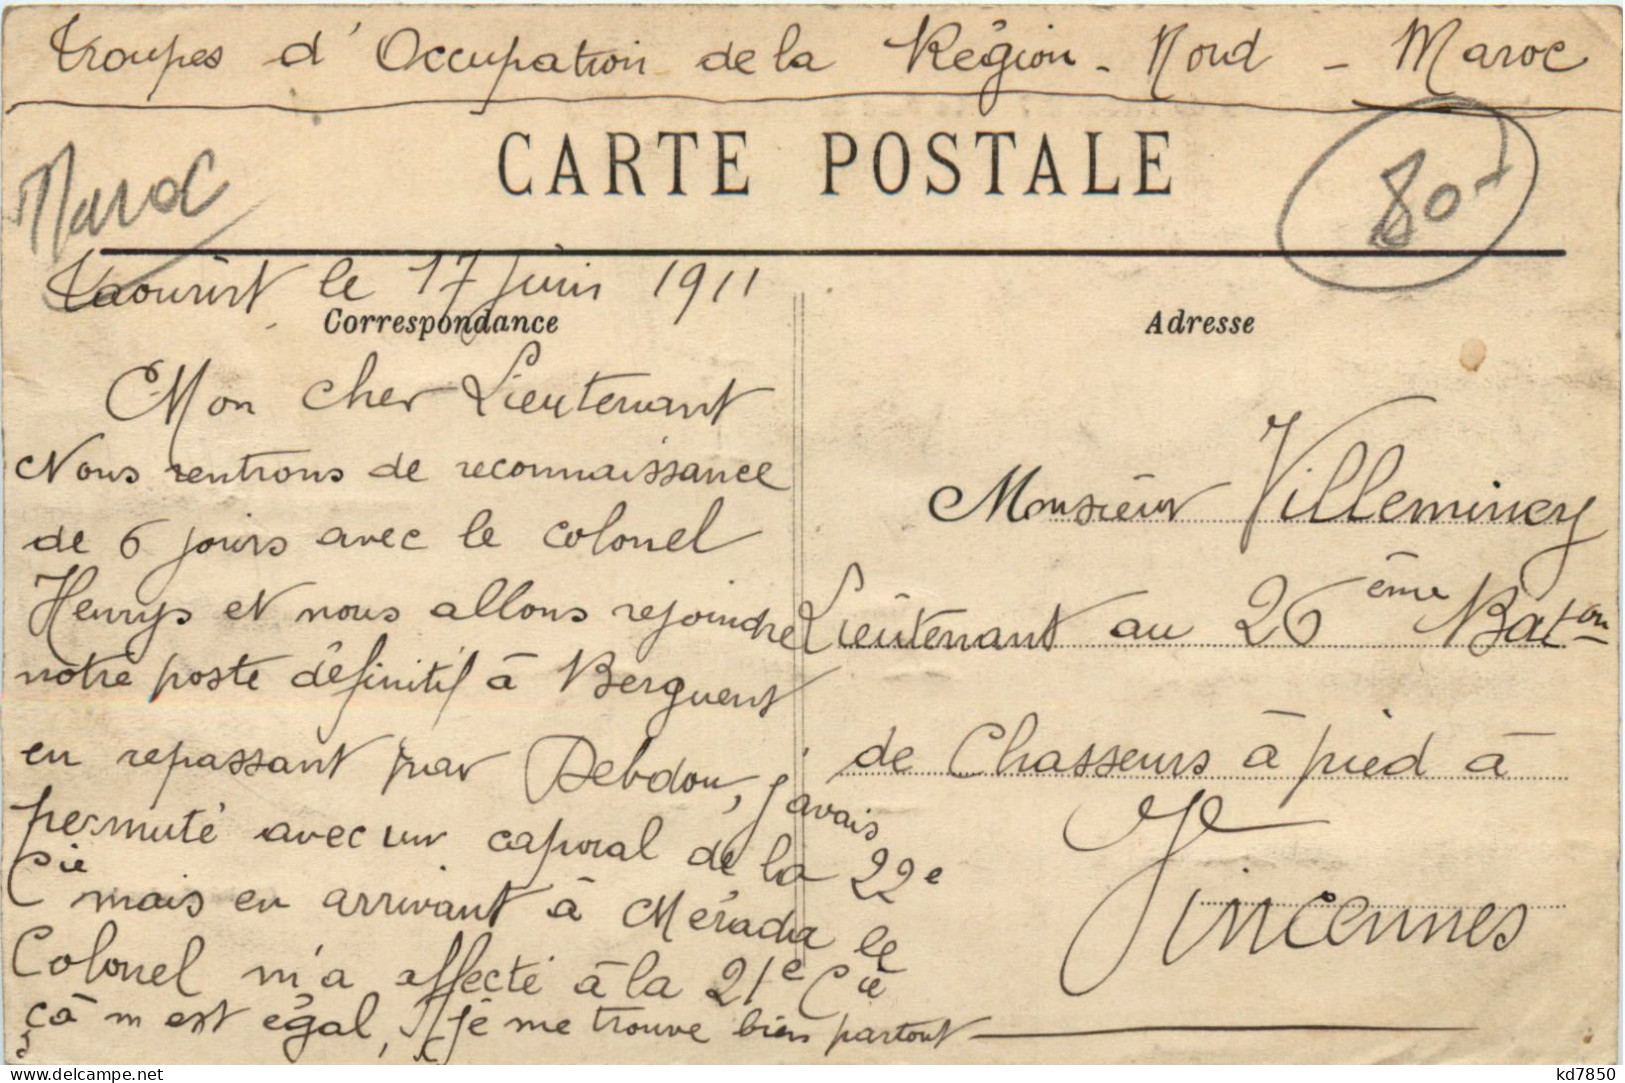 Troupes d'Occupation de la Région - Nord - Maroc
CARTE POSTALE
Maroc
80.-
Taourirt le 17 juin 1911
Correspondance
Mon cher Lieutenant
Nous rentrons de reconnaissance
de 6 jours avec le colonel
Henrys et nous allons rejoindre
notre poste définitif à Berguent
en repassant par Debdou, j'avais
permuté avec un caporal de la 22e
Cie mais en arrivant à Mérada le
Colonel m'a affecté à la 21e Cie
çà m'est égal, je me trouve bien partout
Adresse
Monsieur Villeminey
Lieutenant au 26ème Baton
de Chasseurs à pied à
Vincennes
kd7850